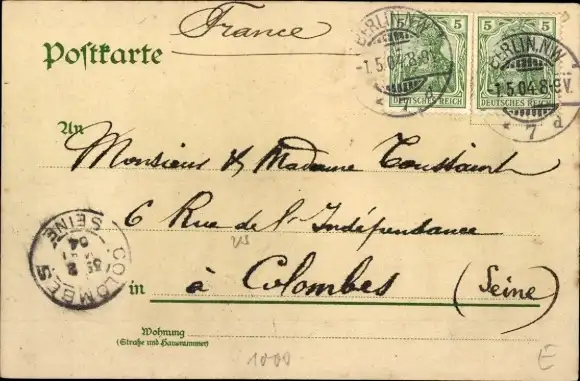 France
5 5
DEUTSCHES REICH DEUTSCHES REICH
BERLIN.N.W. BERLIN.N.W.
-1.5.04.8-9V. -1.5.04.8-9V.
* 7 d * 7 d
Postkarte
An
Monsieur & Madame Toussaint
6 Rue de l'Indépendance
COLOMBES
SEINE
04
in à Colombes (Seine)
Wohnung
(Straße und Hausnummer)
1000
E